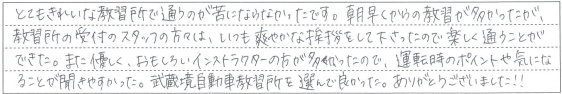 とてもきれいな教習所で通うのが苦にならなかったです。朝早くからの教習が多かったが、
教習所の受付のスタッフの方々は、いつも爽やかな挨拶をして下さったので楽しく通うことが
できた。また優しく、おもしろいインストラクターの方が多かったので、運転時のポイントや気にな
ることが聞きやすかった。武蔵境自動車教習所を選んで良かった。ありがとうございました!!